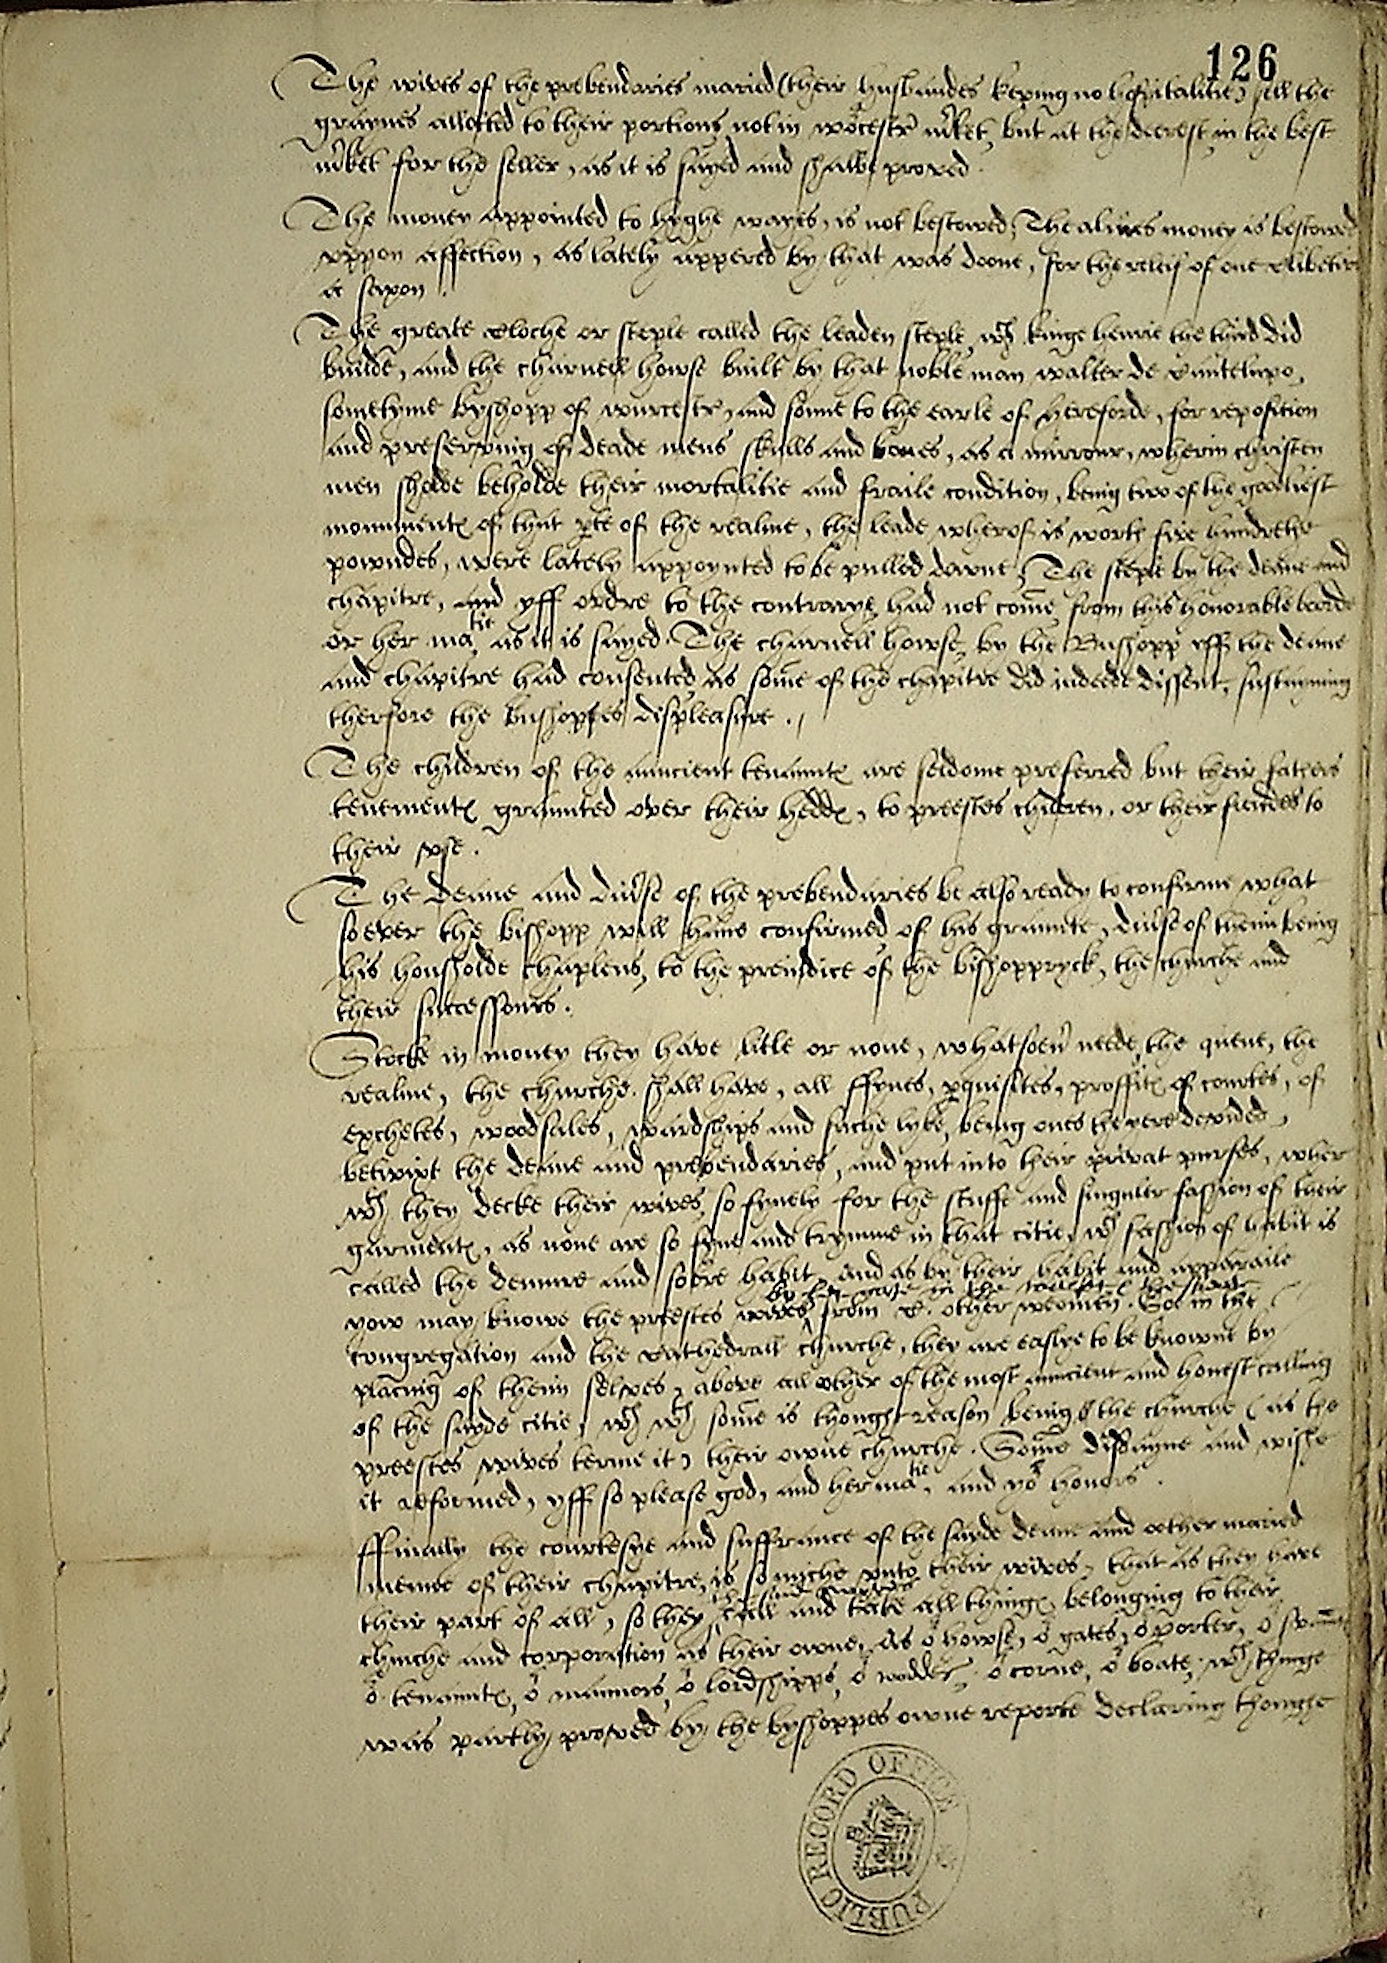 126
The wives of the prebendaries maried (their husbandes keping no hospitalitie) sell the
graynes allotted to their portions not in worcestr mrket, but at the deerest in the best
mrket for the seller, as it is sayed and shalbe proved.
The money appointed to hyghe wayes, is not bestowed, The almes money is bestowed
vppon affection, as lately appered by that was doone, for the releif of one
a saxon.
The greate cloche or steple called the leaden steple wch kinge henrie the third did
builde, and the charnell howse built by that noble man walter de Cantelupo,
sometyme Byshopp of wurcestr, and sonne to the earle of hereforde, for reposition
and preserving of deade mens skulls and bones, as a mirrour, wherin christen
men sholde beholde their mortalitie and fraile condition, being two of the goodliest
monumentes of that pte of the realme, the leade wherof is worth five hundrethe
powndes, were lately appoynted to be pulled downe, The steple by the deane and
chapitre, and yff ordre to the contrarye had not come from this honorable boorde
or her matie as it is sayed. The charnell howse, by the Bushopp yff the deane
and chapitre had consented, as some of the chapitre did indeede dissent, sustayning
therfore the bushoppes displeasure.
The children of the auncient tenauntes are seldome preferred but their fathers
tenementes graunted over their heddes, to preestes children, or their friendes to
their vse.
The deane and diuerse of the prebendaries be also ready to confirme what
soever the bishopp will have confirmed of his graunte, diuerse of theim being
his housholde chaplens, to the preiudice of the bishoppryck, the churche and
their successours.
Stocke in money they have litle or none, whatsoeuer neede, the quene, the
realme, the churche shall have, all ffynes, pquisites, proffites of courtes, of
exchetes, woodsales, wardships and suche lyke, being ones the yere devided,
betwixt the deane and prebendaries, and put into their privat purses, wher
wth they decke their wives, so fynely for the stuffe and singuler fassion of their
garmentes, as none are so fyne and trymme in that citie, wch fashion of habit is
called the demure and sobre habit, and as by their habit and apparaile
by her gate in the &amp; the streate
yow may knowe the preestes wives from other weomen. So in the
congregation and the cathedrall churche, they are easlye to be knowne by
placing of theim selves, above all other of the most auncient and honest calling
of the sayde citie, wch wth some is thought reason being the churche (as the
preestes wives terme it) their owne churche. Some disdayne and wishe
it reformed, yff so please god, and her matie, and yor honors.
ffinally the courtesye and suffrance of the sayde deane and other maried
membr of their chapitre, is so miche vnto their wives, that as they have
their part of all, so they call and take all thinges belonging to their
churche and corporation as their owne, As or howse, or gates, or porter, or
or tenauntes, or mannors, or lordshipps, or wodde, or corne, or boate, wch thinge
was partly proved by the byshoppes owne reporte declaring thoughe
PUBLIC RECORD OFFICE